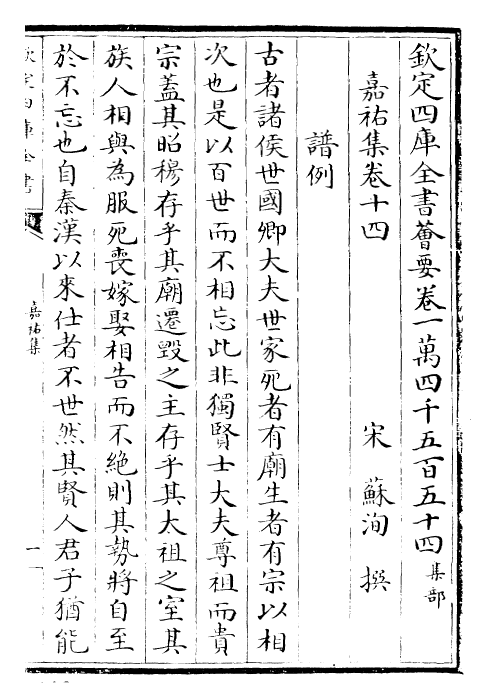 欽定四庫全書薈要卷一萬四千五百五十四集部
嘉祐集卷十四
宋 蘇洵 撰
譜例
古者諸侯世國卿大夫世家死者有廟生者有宗以相
次也是以百世而不相忘此非獨賢士大夫尊祖而貴
宗蓋其昭穆存乎其廟遷毀之主存乎其太祖之室其
族人相與為服死喪嫁娶相告而不絶則其勢將自至
於不忘也自秦漢以來仕者不世然其賢人君子猶能
欽定四庫全書
嘉祐集
一